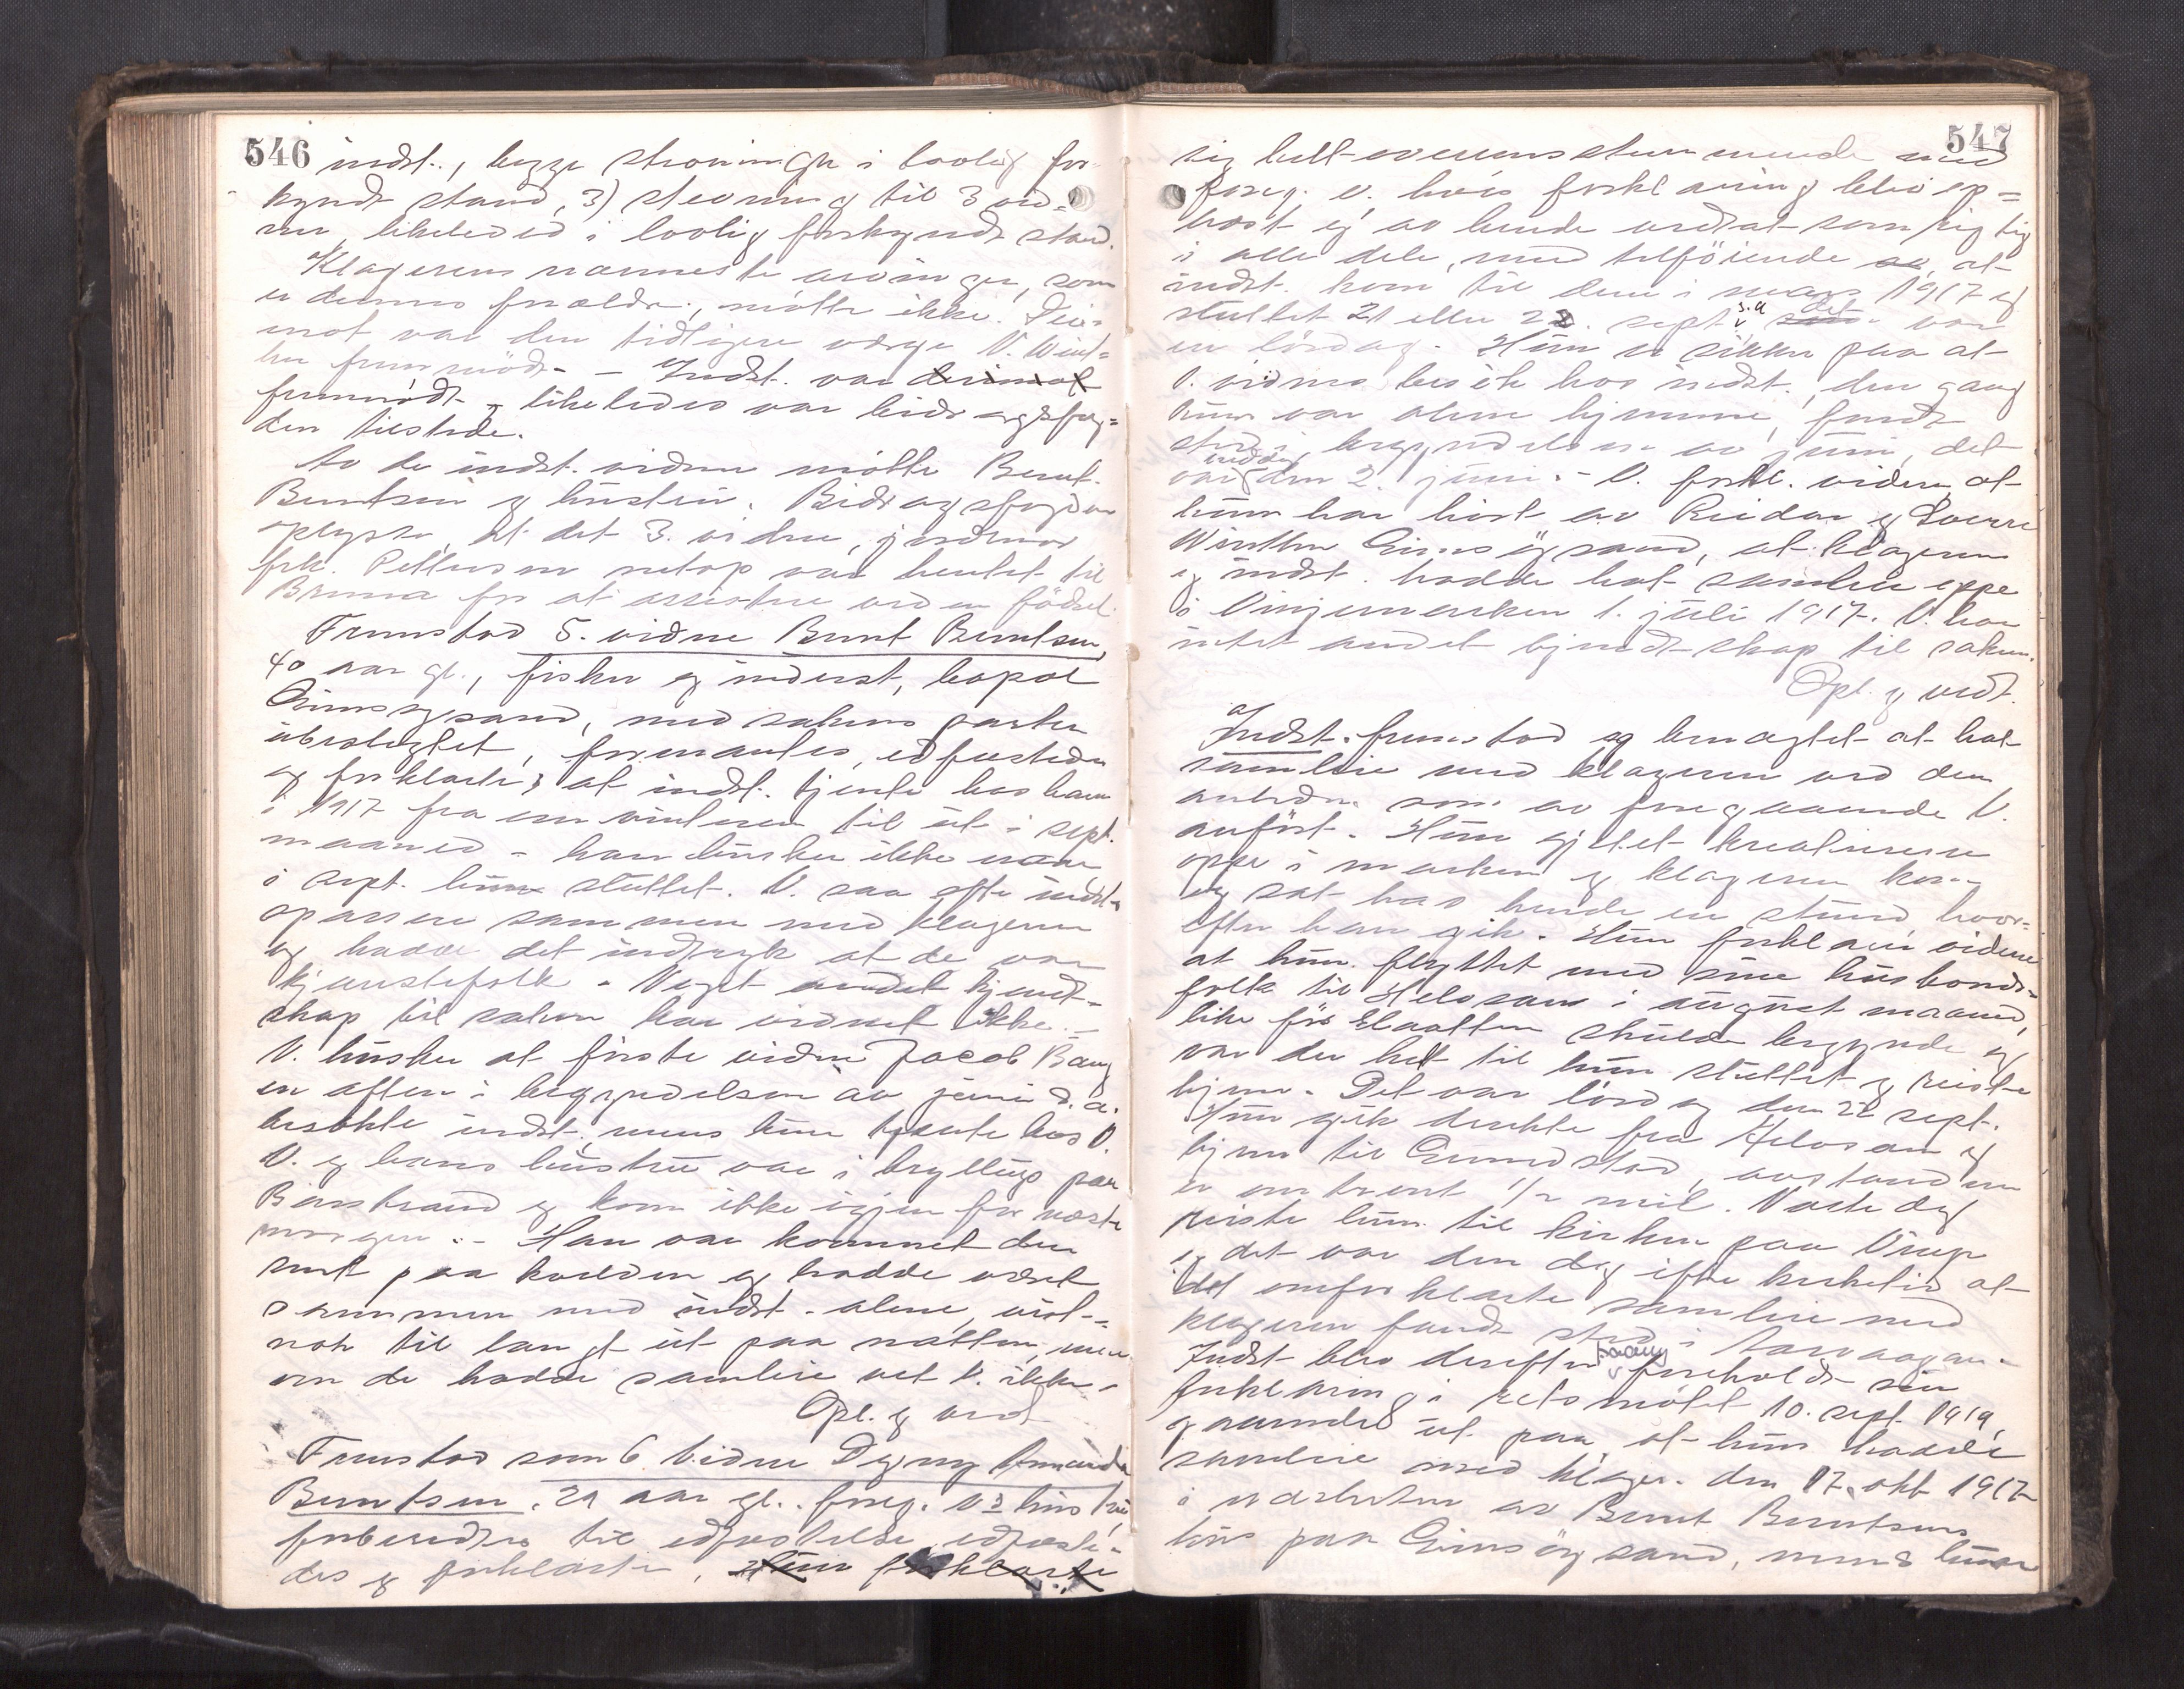 546
indst., begge stevninger i lovlig for-
kyndt stand, 3) stevning til 3 vid-
ner, likeledes i lovlig forkyndt stand.
Klagerens nærmeste arvinger, som
er dennes forældre, møtte ikke. Der-
imot var den tidligere verge N. Wint-
her fremmødt. - Indst. var derimot
fremmødt - likeledes var bidragsfog-
den tilstede.
Av de indst. vidner møtte Bernt
Berntsen og hustru. Bidragsfogden
oplyste, at det 3. vidne, jordmor
frk. Pettersen netop var hentet til
Brenna for at assistere ved en fødsel.
Fremstod 5. vidne Bernt Berntsen,
40 aar gl., fisker og inderst, bopæl
Gimsøysand, med sakens parter
ubeslegtet, formantes, edfæstedes
og forklarte: at indst. tjente hos ham
i 1917 fra om vinteren til ut i sept.
maaned - han husker ikke naar
i sept. hun sluttet. V. saa ofte indst.
spasere sammen med klageren
og hadde det indtryk at de var
kjærestefolk. Noget andet kjend-
skap til saken har vidnet ikke. -
V. husker at første vidne Jacob Bang
en aften i begyndelsen av juni d.a.
besøkte indst., mens hun tjente hos V.
V. og hans hustru var i bryllup paa
Barstrand og kom ikke igjen før næste
morgen. - Han var kommet der
sent paa kvelden og hadde været
sammen med indst. alene, vist-
nok til langt ut paa natten, men
om de hadde samleie vet V. ikke.
Opl. og vedt.
Fremstod som 6. vidne Dagny Amanda
Berntsen, 29 aar gl., foreg. V's hustru
forberedtes til edfæstelse, edfæste-
des og forklarte, Hun forklarte
547
sig helt overensstemmende med
foreg. V. hvis forklaring blev op-
læst og av hende vedtat som rigtig
i alle dele, med tilføiende av, at
indst. kom til dem i mars 1917 og
sluttet 21 eller 22. sept. s.a. som det var
en lørdag. Hun er sikker paa at
1. vidnes besøk hos indst., den gang
hun var alene hjemme, fandt
sted i begyndelsen av juni, det
var ved den 2. juni. - V. forkl. videre at
hun har hørt av Reidar og Sverre
Winther Gimsøysand, at klageren
og indst. hadde hat samleie oppe
i Vinjemarken 1. juli 1917. V. har
intet andet kjendskap til saken.
Opl. og vedt.
Indst. fremstod og benægtet at hat
samleie med klageren ved den
anledn. som av foregaaende V.
anført. Hun gjætet kreaturene
oppe i marken og klageren kom
og sat hos hende en stund hvor-
efter han gik. Hun forklarer videre
at hun flyttet med sine husbonds-
folk til Helosan i august maaned,
like før slaatten skulde begynde og
var der helt til hun sluttet og reiste
hjem. Det var lørdag den 22 sept.
Hun gik direkte fra Helosan og
hjem til Grundstad, avstanden
er omtrent 1/2 mil. Næste dag
reiste hun til kirken paa Vinje
og det var den dag efter kirketid at
det omforklarte samleie med
klageren fandt sted i Aarvaagen.
Indst. blev derefter paany foreholdt sin
forklaring i retsmøtet 10. sept. 1919,
gaaende ut paa, at hun hadde
samleie med klager. den 17. okt 1917
i nærheten av Bernt Berntsens
hus paa Gimsøysand, mens hun